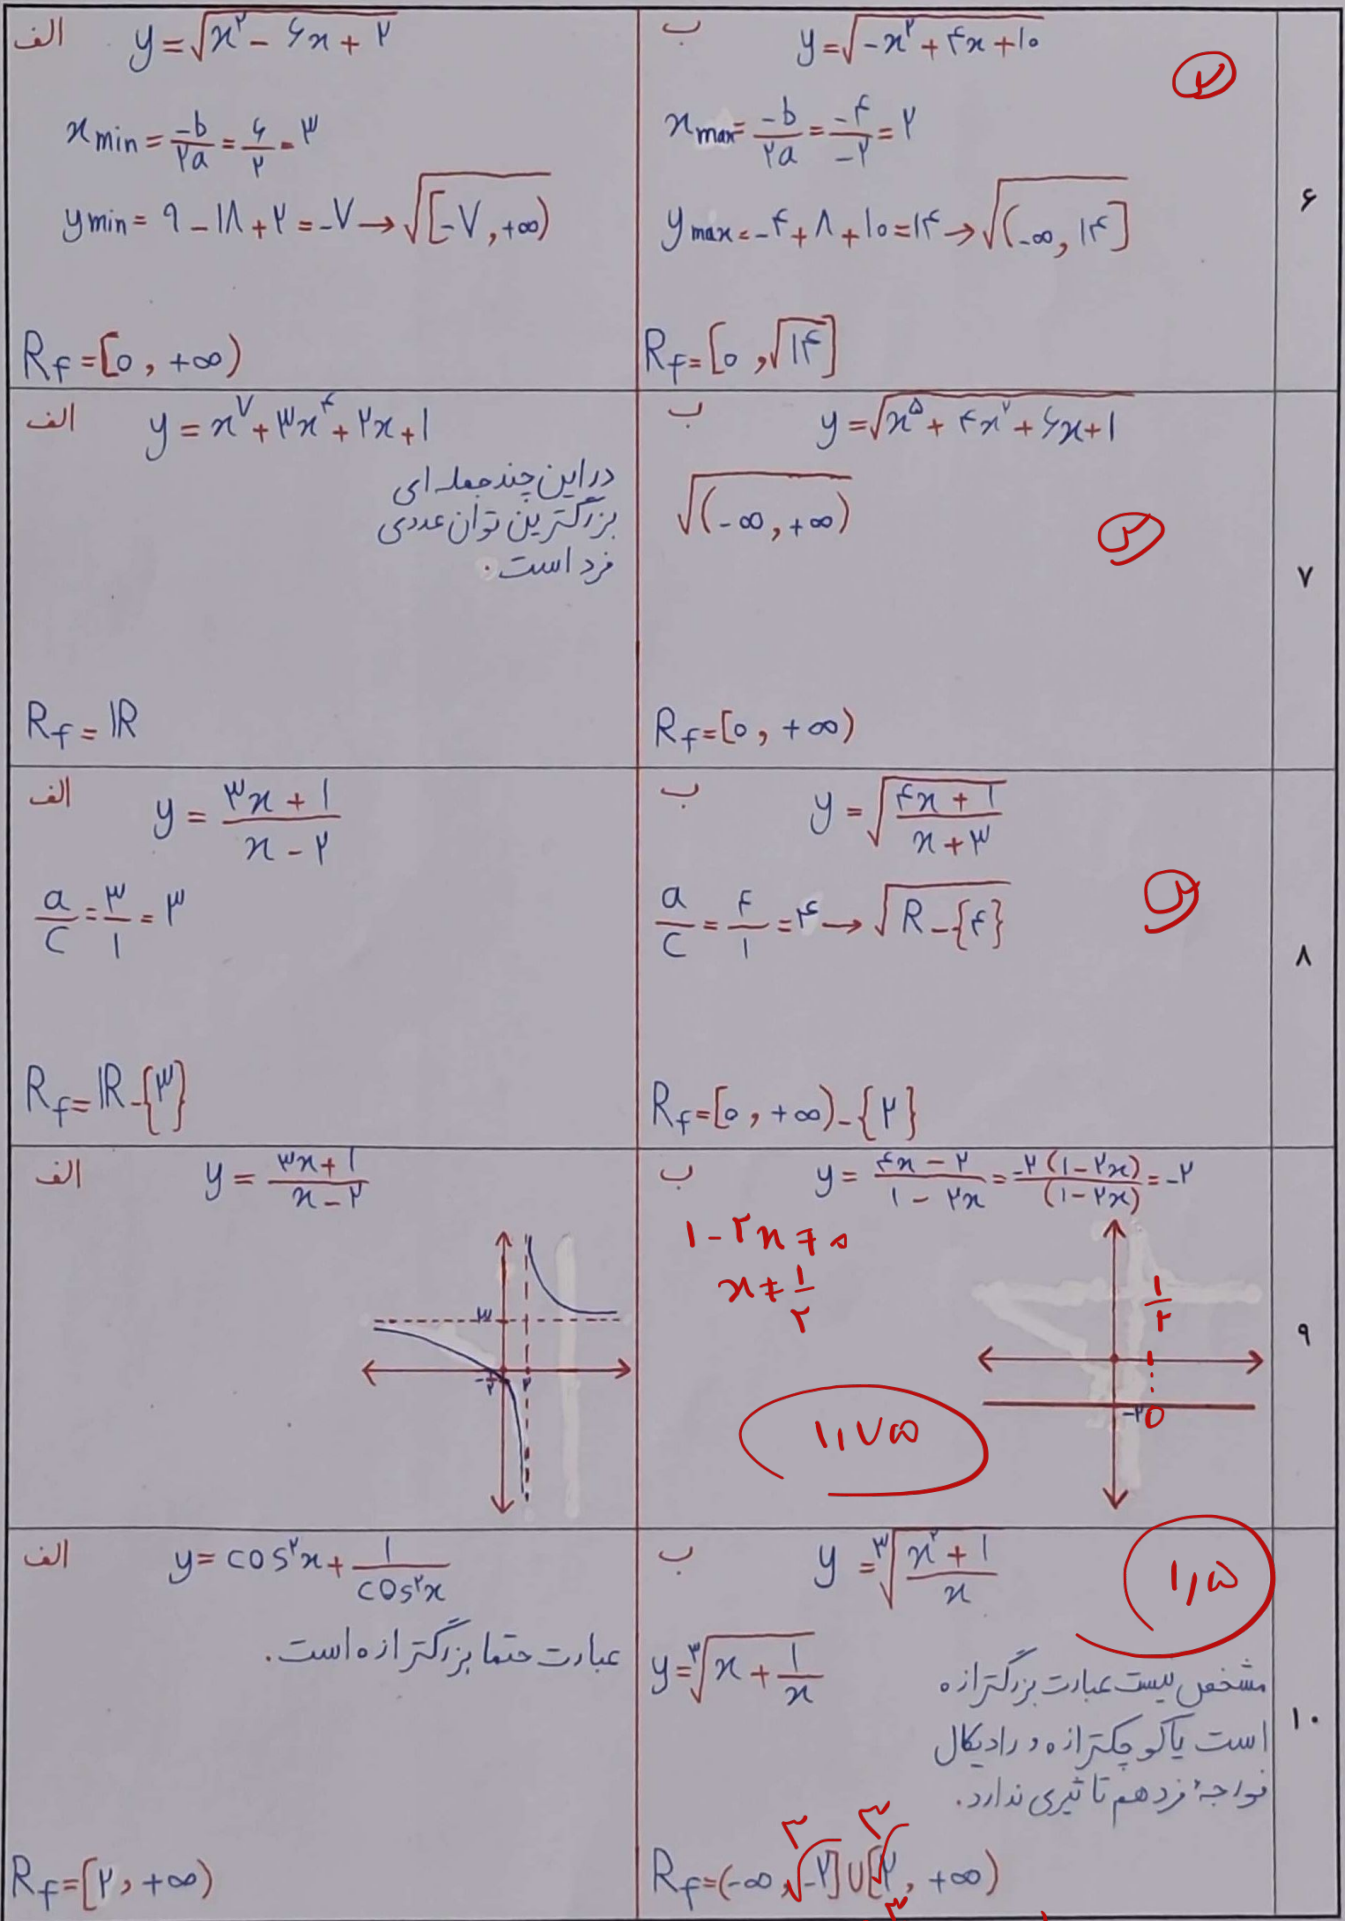 ۶
الف
y = √(x² - ۶x + ۲)
x min = -b/۲a = ۶/۲ = ۳
y min = ۹ - ۱۸ + ۲ = -۷ → √[-۷, +∞)
R_f = [۰, +∞)
ب
y = √(-x² + ۴x + ۱۰)
۲
x max = -b/۲a = -۴/-۲ = ۲
y max = -۴ + ۸ + ۱۰ = ۱۴ → √(-∞, ۱۴]
R_f = [۰, √۱۴]
۷
الف
y = x⁷ + ۳x⁴ + ۲x + ۱
در این چند جمله ای
بزرگترین توان عددی
فرد است.
R_f = ℝ
ب
y = √(x⁵ + ۴x² + ۶x + ۱)
√(-∞, +∞)
۲
R_f = [۰, +∞)
۸
الف
y = (۳x + ۱)/(x - ۲)
a/c = ۳/۱ = ۳
R_f = ℝ - {۳}
ب
y = √((۴x + ۱)/(x + ۳))
a/c = ۴/۱ = ۴ → √(R - {۴})
۲
R_f = [۰, +∞) - {۲}
۹
الف
y = (۳x + ۱)/(x - ۲)
۳
-۱/۲
۲
ب
y = (۴x - ۲)/(۱ - ۲x) = -۲(۱ - ۲x)/(۱ - ۲x) = -۲
۱ - ۲x ≠ ۰
x ≠ ۱/۲
۱/۲
-۲
۱,۷۵
۱۰
الف
y = cos²x + ۱/cos²x
عبارت حتما بزرگتر از ۰ است.
R_f = [۲, +∞)
ب
y = ∛((x² + ۱)/x)
۱,۵
y = ∛(x + ۱/x)
مشخص نیست عبارت بزرگتر از ۰
است یا کوچکتر از ۰ و رادیکال
فورجهٔ فرد هم تاثیری ندارد.
R_f = (-∞, ∛-۲] ∪ [∛۲, +∞)